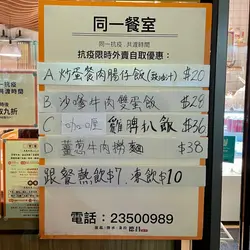 同一餐室
同一抗疫 共渡時間
抗疫限時外賣自取優惠：
A 炒蛋餐肉腸仔飯 $20
B 沙嗲牛肉雙蛋飯 $28
C 咖喱 雞脾扒飯 $36
D 薑蔥牛肉撈麵 $38
跟餐熱飲$7、凍飲$10
電話：23500989